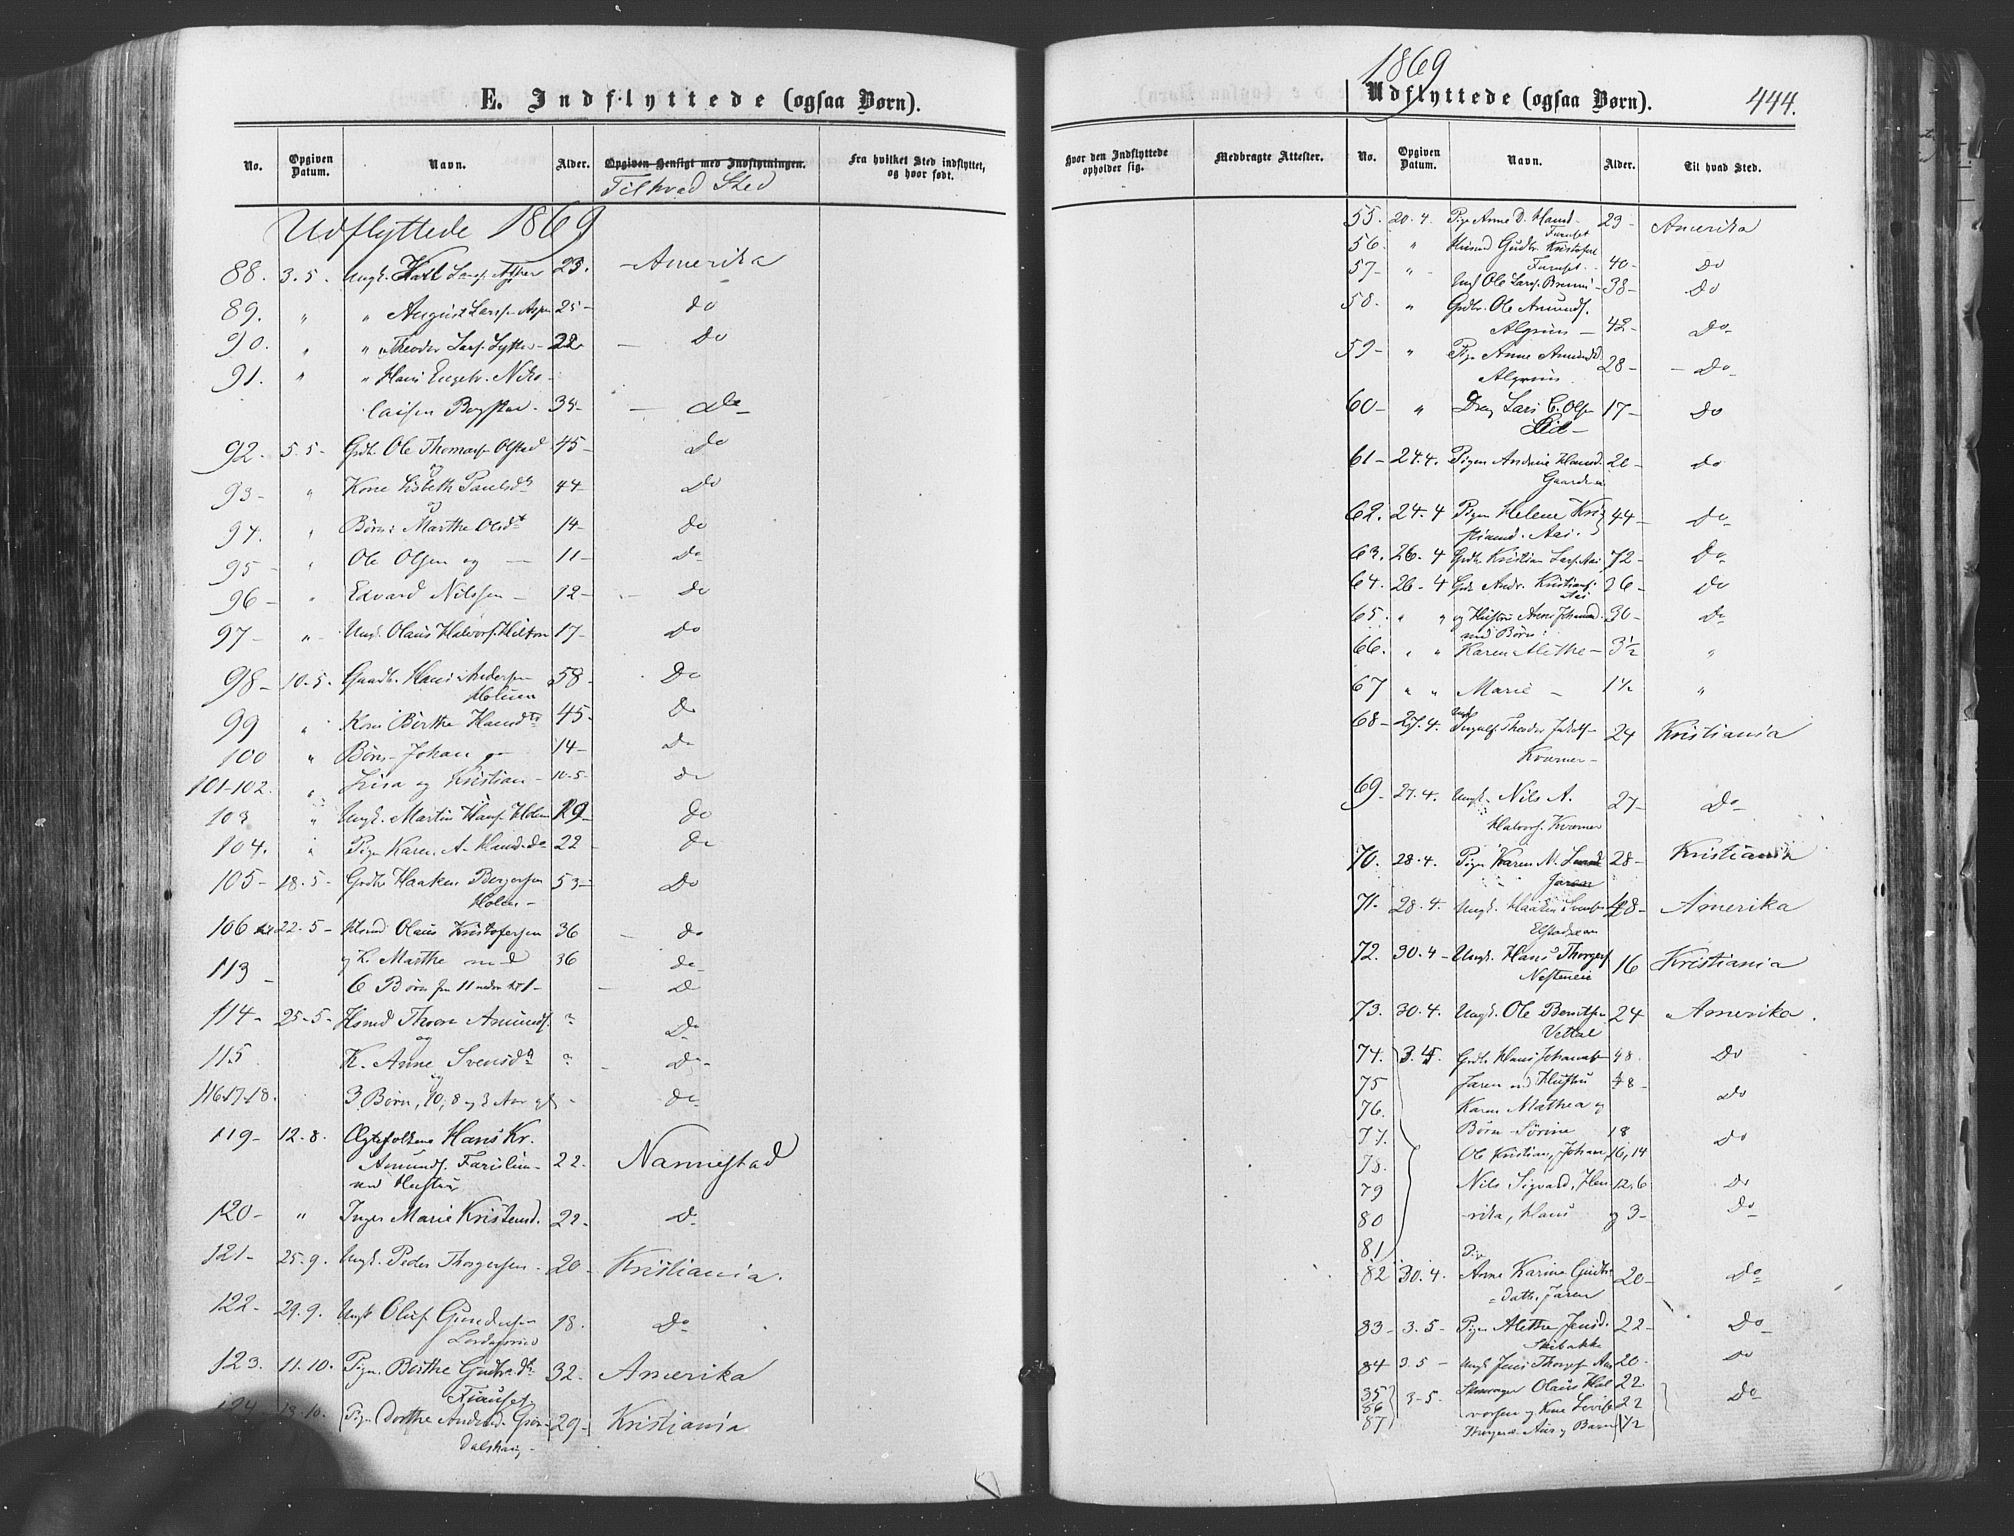 E. Indflyttede (ogsaa Børn).
No. Opgiven Datum. Navn. Alder. Opgiven Hensigt med Indflytningen. Fra hvilket Sted indflyttet, og hvor født.
Til hvad Sted
Udflyttede 1869
88. 3.5. Ungk. Larss. 23. - Amerika
89. " " August Larss. 25- do
90. " " Theodor Larss. 22- Do
91. " " Hans Engebr. Niko-
laisen 35- Do
92. 5.5- Grdb. Ole Thomass. Olstad 45- Do
og
93- " Kone Lisbeth Paulsd. 44- Do
og
94. " Børn: Marthe Olsdt 14- Do
95- " Ole Olsen og 11- Do
96- " Edvard Nilsen - 12- Do
97- " Ungk. Olaus Halvors. 17- Do
98- 10.5. Gaardb. Hans Anders
Holmen 58- Do
99 " Kone Berthe Hansdtr 45- Do
100 " Børn Johan og 14- Do
101-102. " Lina og Kristian - 10.5- do
103 " Ungk. Martin Hans. Holm 19- Do
104. " Pige Karen A. Hansd. do 22- Do
105- 18.5- Grdbr Haaken Bergersen
Holm- 53- Do
106 til 22.5- Hsmd Olaus Kristofersen 36 - do
113- Marthe med 36 do-
6 Børn fra 11 1- - D
114- 25-5- Hsmd Thore Amunds. " Do
og
115. K. Anne Svensdt " - Do-
og
116.17.18. 3 Børn, 10, 8 og 3 Aar gl. - do-
119- 12.8. Ægtefolkene Hans Kr.
Amunds. 22. Nannestad
med Hustru
120- " Inger Marie Kristensd. 22- Do-
121- 25.9. Ungk. Peder Thorgersen - 20- Kristiania.
122- 29.9. Ungk Oluf Gunders 18. Do-
123. 11.10. Pigen Berthe 32. Amerika
124 13.10. Pige Dorthe Andersd. 29- Kristiania
1869
Udflyttede (ogsaa Børn). 444.
Hvor den Indflyttede opholder sig. Medbragte Attester. No. Opgiven Datum. Navn. Alder. Til hvad Sted.
55. 20.4. Pige Anne D. Hansd. 23- Amerika
56. " Husmd Gudbr. Kristofers
40- Do
57- " Ungk Ole Larss. 38- Do
58. " Grdbr. Ole Amunds.
Algrim - 42- Do-
59- " Pige Anne Amundsd
Algrim 28- - Do-
60- " Dreng Lars C. Ols 17- Do
61- 24.4. Pigen Andrine Hansd. 20- Do
62. 24.4 Pigen Helene Kri-
stiansd. Aas. 44- Do-
63. 26.4 Grdb Kristian Larss. Aas 72- Do-
64. 26.4 Grdb Andr. Kristians.
Aas 36- Do
65. " " og Hustru Anne Johannesd. 30- Do
med Børn:
66. " " Karen Alethe - 3½ "
67 " " Marie - 1½ "
68- 27.4. Ungk Ingulf Theodor Adolf- 24 Kristiania
Kværner-
69- 27.4. Ungk. Nils A. 27- Do-
Halvors. Kværner
70. 28.4. Pigen Karen N. 28- Kristiania
Jaren
71. 28.4. Ungk. Haaken Svens 28- Amerika
72. 30.4- Ungk. Hans Thorgers 16 Kristiania
73. 30.4. Ungk. Ole Berntsen 24 Amerika.
74. 3.5. Grdb Hans Johannes 48. Do
75 Jaren med Hustru 48-
76. Karen Mathea og Do
77. Børn Sørine 18
78. Ole Kristian, Johan, 16, 14 Do
79 Nils Sigvard, Hen- 12.6 Do
80 rika, Hans og 3- Do-
81
82 30.4. Anne Karine Gudbr 20- Do-
datt. Jaren
83- 3.5- Pigen Alethe Jensd. 22- Do-
Skibakke
84 3.5- Ungk Jens Thorgs Aas 20. Do
85 Skomager Olaus Hal 22
86 3-5. vorsen og Kone 22 Do
87 Aas og Barn ½